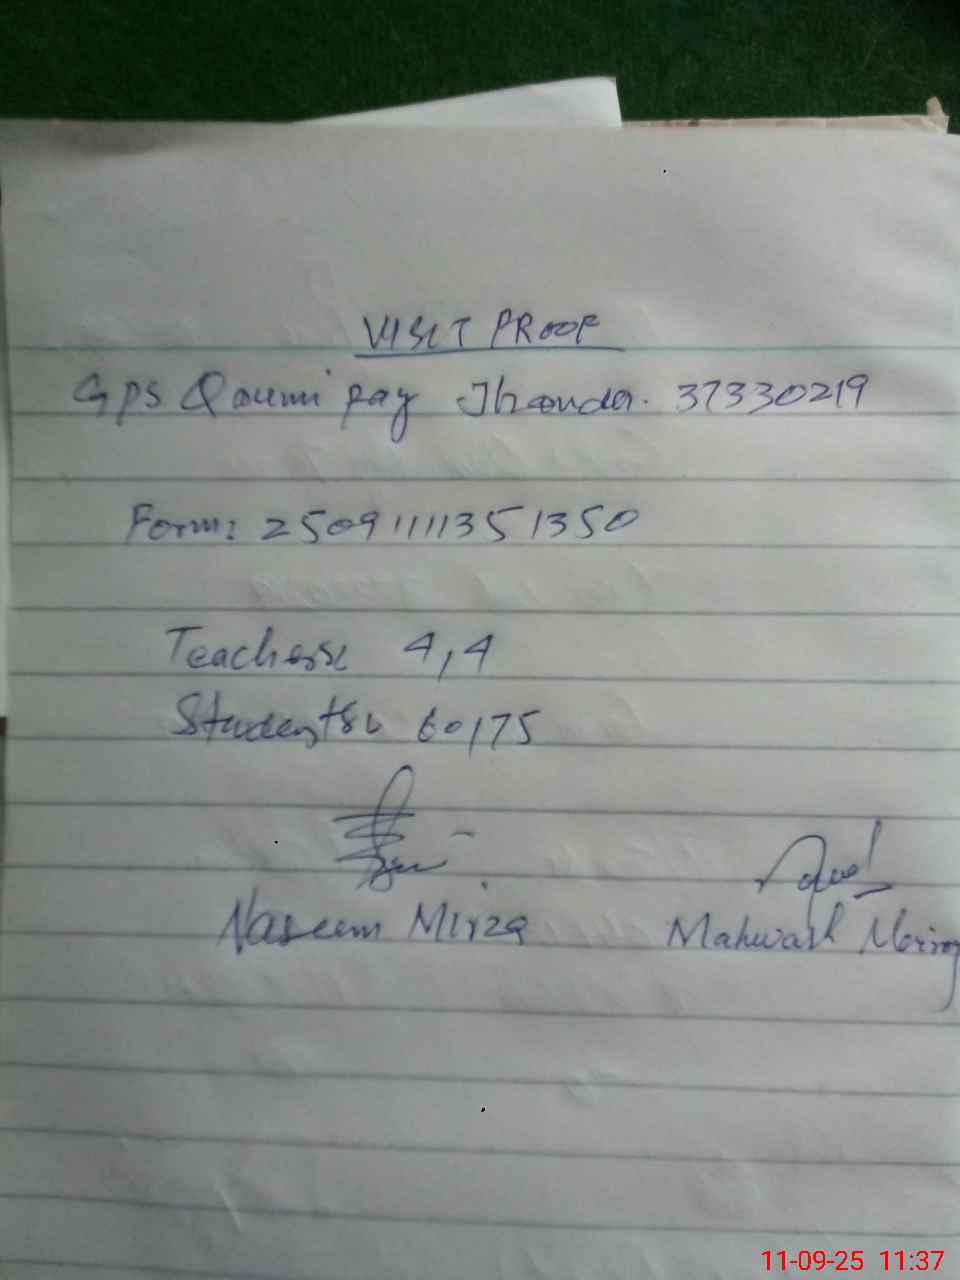 VISIT PROOF
GPS Qaumi pay Jhanda. 37330219
Form: 2509111135 1350
Teachers: 4,4
Students: 60/75
Naseem Mirza
Mahwash
11-09-25 11:37